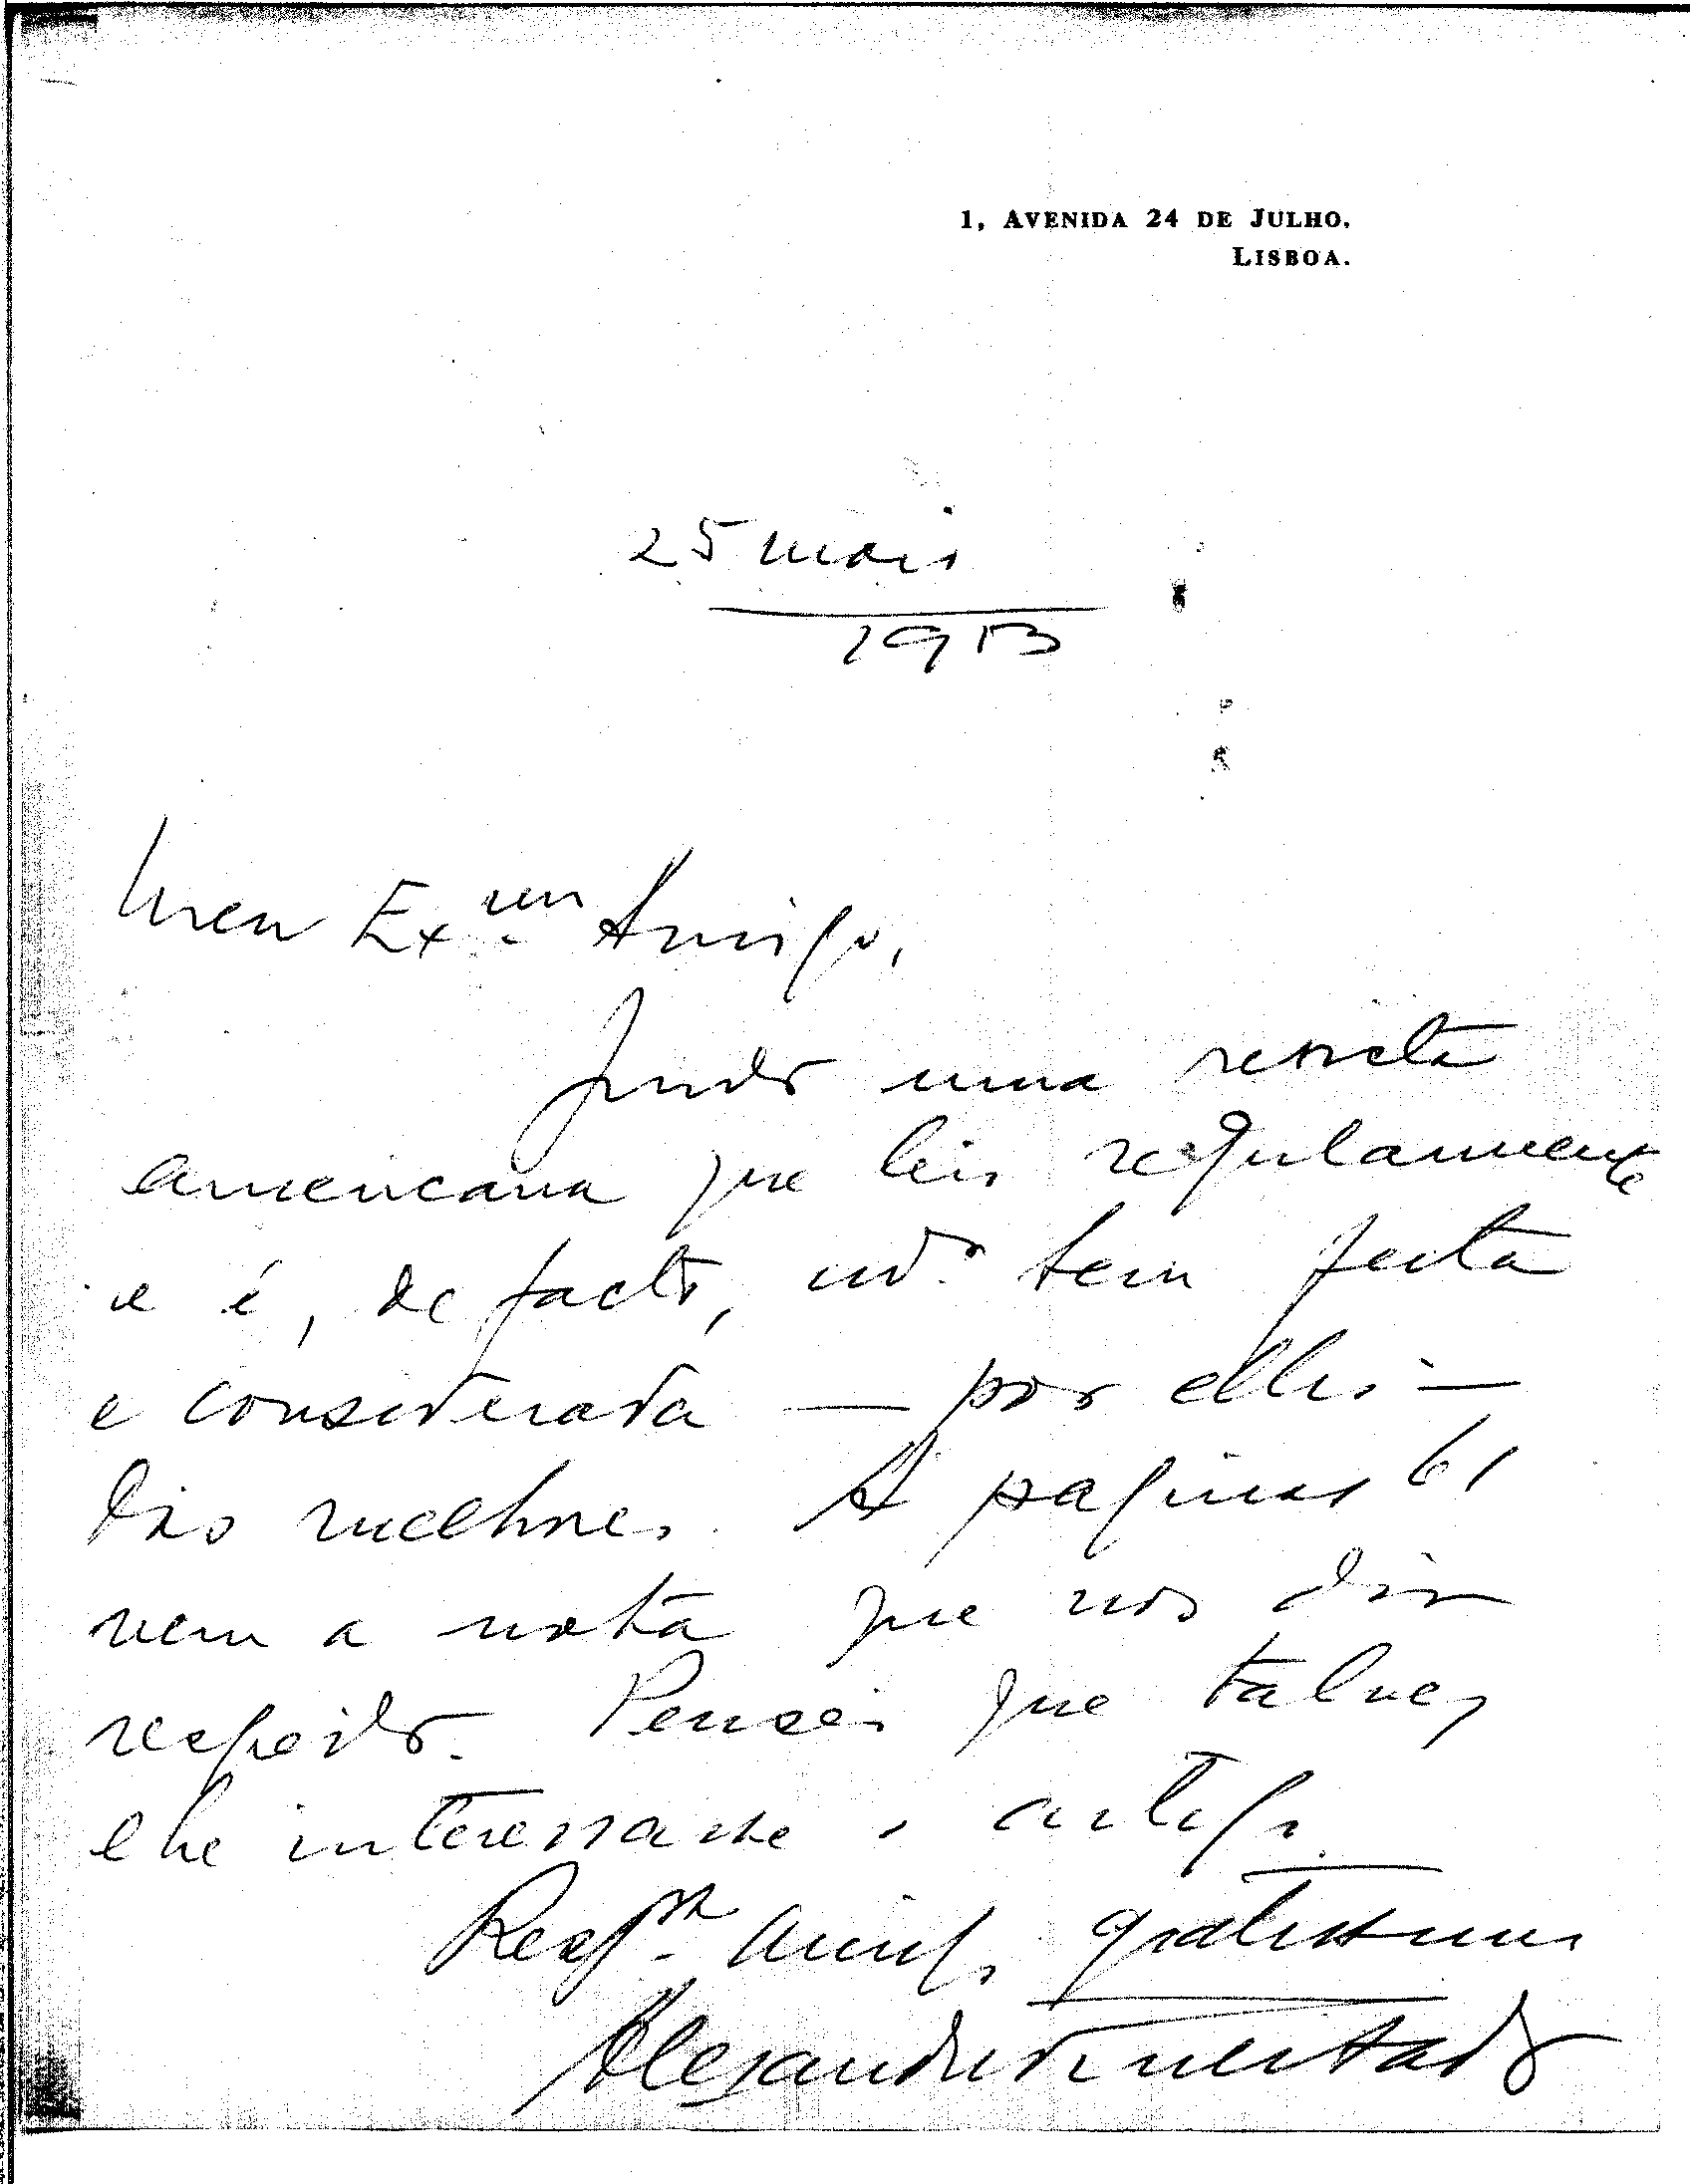 1, AVENIDA 24 DE JULHO,
LISBOA.
25 maio
1953
Meu Ex.mo Amigo,
Junto uma revista
americana que leio regularmente
e é, de facto, m.to bem feita
e considerada — por elles —
das melhores. A paginas 61
vem a nota que nos diz
respeito. Pensei que talvez
lhe interessasse o artigo.
amigo gratissimo